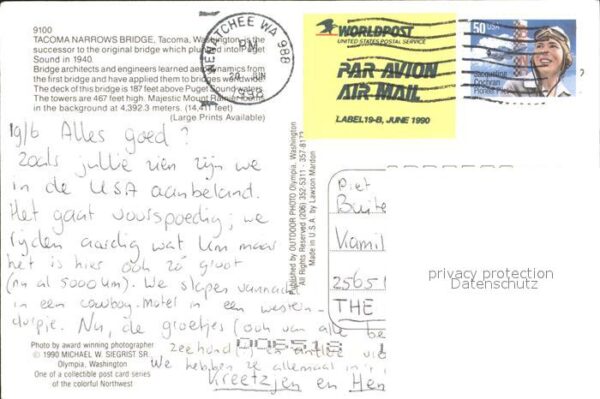 9100
TACOMA NARROWS BRIDGE, Tacoma, Washington is the
successor to the original bridge which plunged into Puget
Sound in 1940.
Bridge architects and engineers learned aerodynamics from
the first bridge and have applied them to bridges worldwide.
The deck of this bridge is 187 feet above Puget Sound waters.
The towers are 467 feet high. Majestic Mount Rainier looms
in the background at 4,392.3 meters. (14,411 feet)
(Large Prints Available)
WENATCHEE WA 988
PM
20 JUN
WORLDPOST
UNITED STATES POSTAL SERVICE
PAR AVION
AIR MAIL
LABEL 19-B, JUNE 1990
50 USA
Jacqueline
Cochran
Pioneer Pilot
19/6 Alles goed?
Zoals jullie zien zijn we
in de USA aanbeland.
Het gaat voorspoedig; we
rijden aardig wat km maar
het is hier ook zó groot
(nu al 5000 km). We slapen vannacht
in een cowboy-motel in een western-
dorpje. Nu, de groetjes (ook van alle
zeehond
We hebben ze allemaal
Kreetzjen en Hen
Published by OUTDOOR PHOTO Olympia, Washington
All Rights Reserved (206) 352-5311
Made in U.S.A. by Lawson Mardon
Piet
Buite
2565
THE
privacy protection
Datenschutz
Photo by award winning photographer
© 1990 MICHAEL W. SIEGRIST SR.
Olympia, Washington
One of a collectible post card series
of the colorful Northwest
006518